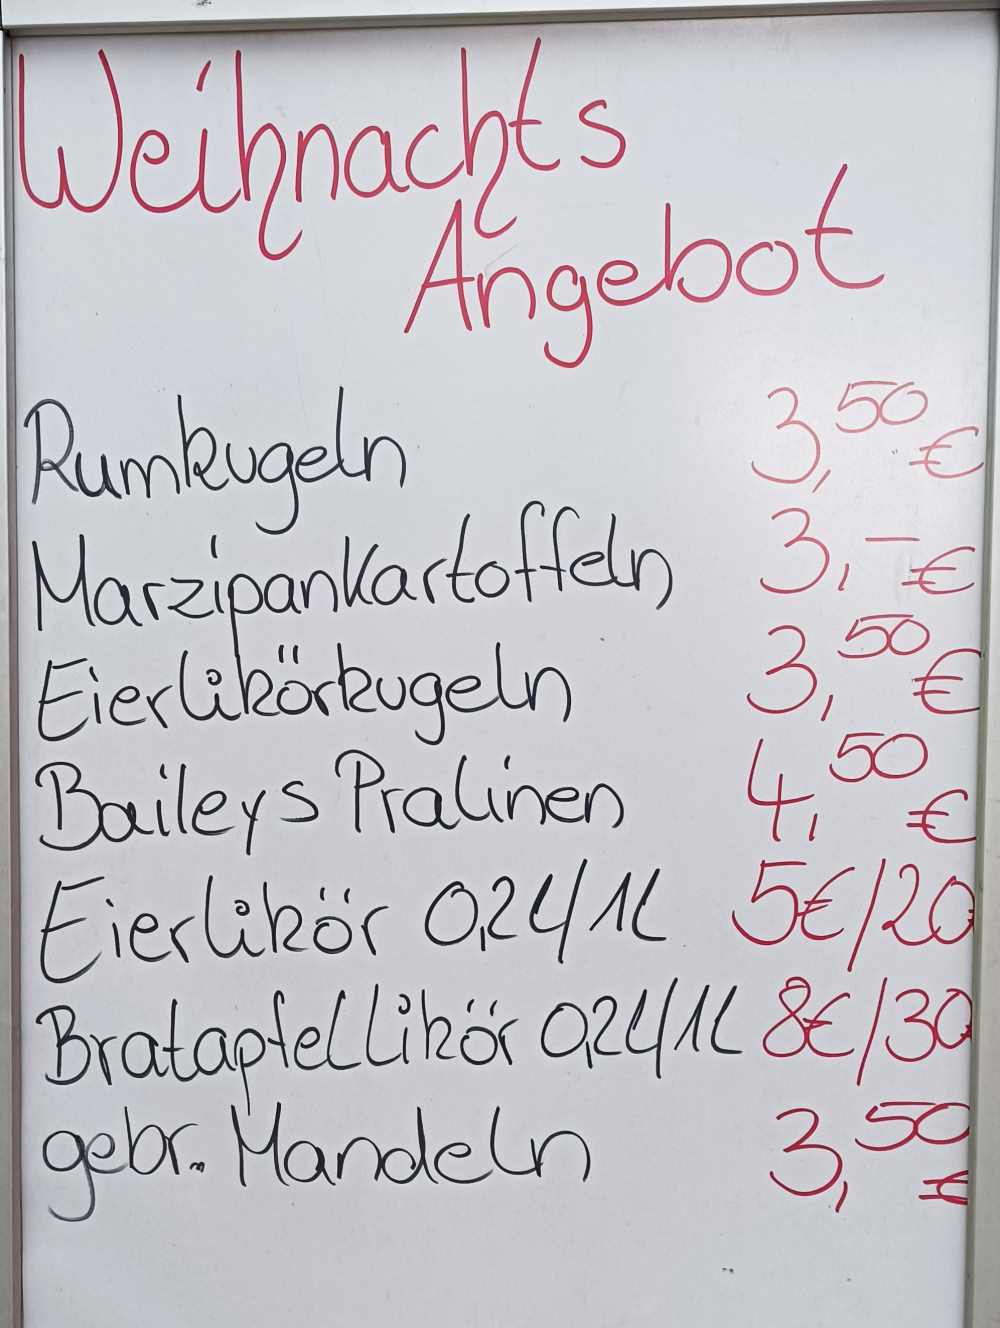 Weihnachts
Angebot
Rumkugeln 3,50 €
Marzipankartoffeln 3,- €
Eierlikörkugeln 3,50 €
Baileys Pralinen 4,50 €
Eierlikör 0,2l/1L 5€/20
Bratapfellikör 0,2l/1L 8€/30
gebr. Mandeln 3,50 €